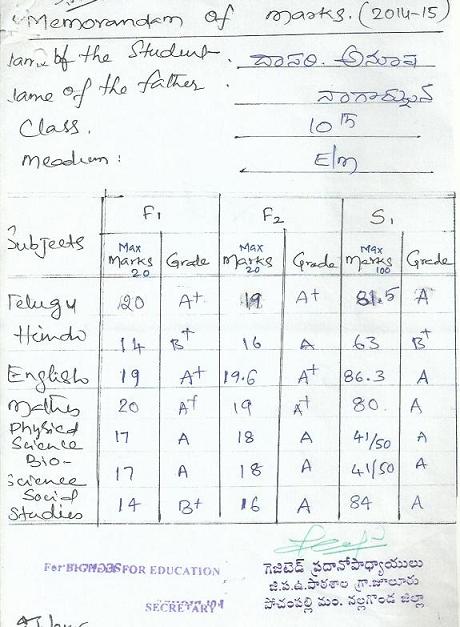 Memorandam of marks. (2014-15)
Name of the Student. దాసరి. అనూష
Name of the father. నాగార్జున
Class. 10th
Meadium: E/m
Subjects F1 F2 S1
Max Marks 20 Grade Max Marks 20 Grade Max Marks 100 Grade
Telugu 20 A+ 19 A+ 81.5 A
Hindo 14 B+ 16 A 63 B+
English 19 A+ 19.6 A+ 86.3 A
Maths 20 A+ 19 A+ 80. A
Physical Science 17 A 18 A 41/50 A
Bio-Science 17 A 18 A 41/50 A
Social Studies 14 B+ 16 A 84 A
గెజిటెడ్ ప్రధానోపాధ్యాయులు
For FOR EDUCATION
జి.ప.ఉ.పాఠశాల గ్రా.జూలూరు
SECRETARY
పోచంపల్లి మం. నల్లగొండ జిల్లా